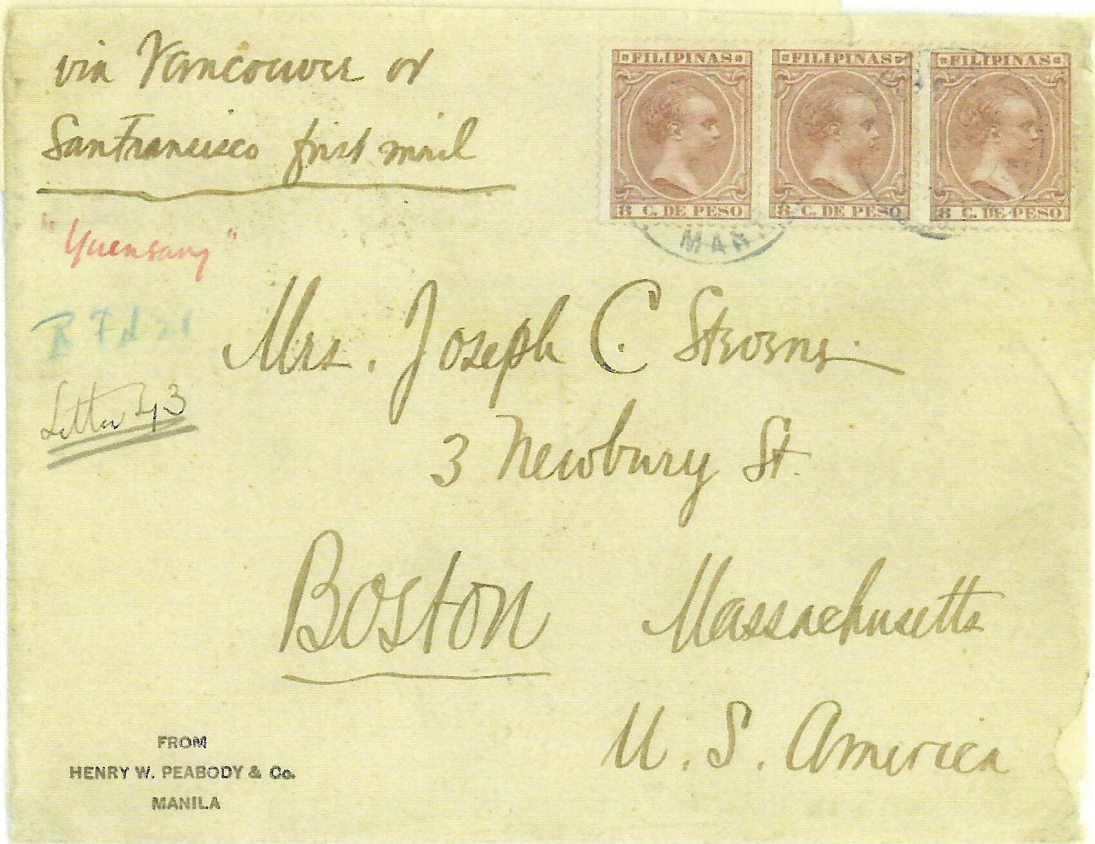 via Vancouver or
San Francisco first mail
FILIPINAS
8 C. DE PESO
FILIPINAS
8 C. DE PESO
FILIPINAS
8 C. DE PESO
MAR
"Yuensang"
Letter 43
Mrs. Joseph C. Stevens.
3 Newbury St.
Boston Massachusetts
U. S. America
FROM
HENRY W. PEABODY & Co.
MANILA